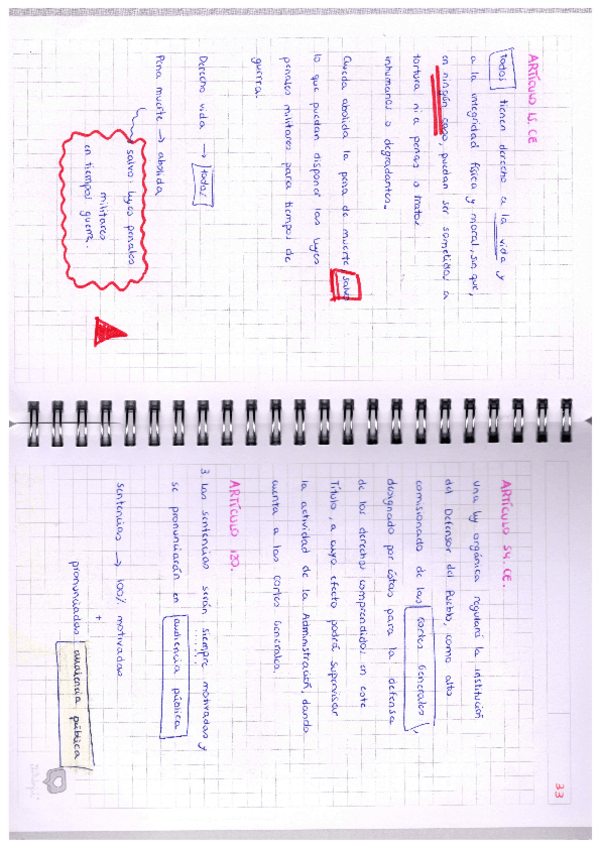 ARTÍCULO 15. CE
Todos tienen derecho a la vida y
a la integridad física y moral, sin que,
en ningún caso, puedan ser sometidos a
tortura ni a penas o tratos
inhumanos o degradantes.
Queda abolida la pena de muerte, salvo
lo que puedan disponer las leyes
penales militares para tiempos de
guerra.
Derecho vida → todos
Pena muerte → abolida
salvo: leyes penales
militares
en tiempos guerra.
33
ARTÍCULO 54. CE.
Una ley orgánica regulará la institución
del Defensor del Pueblo, como alto
comisionado de las Cortes Generales,
designado por éstas para la defensa
de los derechos comprendidos en este
Título, a cuyo efecto podrá supervisar
la actividad de la Administración, dando
cuenta a las Cortes Generales.
ARTÍCULO 120.
3. Las sentencias serán siempre motivadas y
se pronunciarán en audiencia pública
sentencias → 100% motivadas
+
pronunciadas audiencia pública